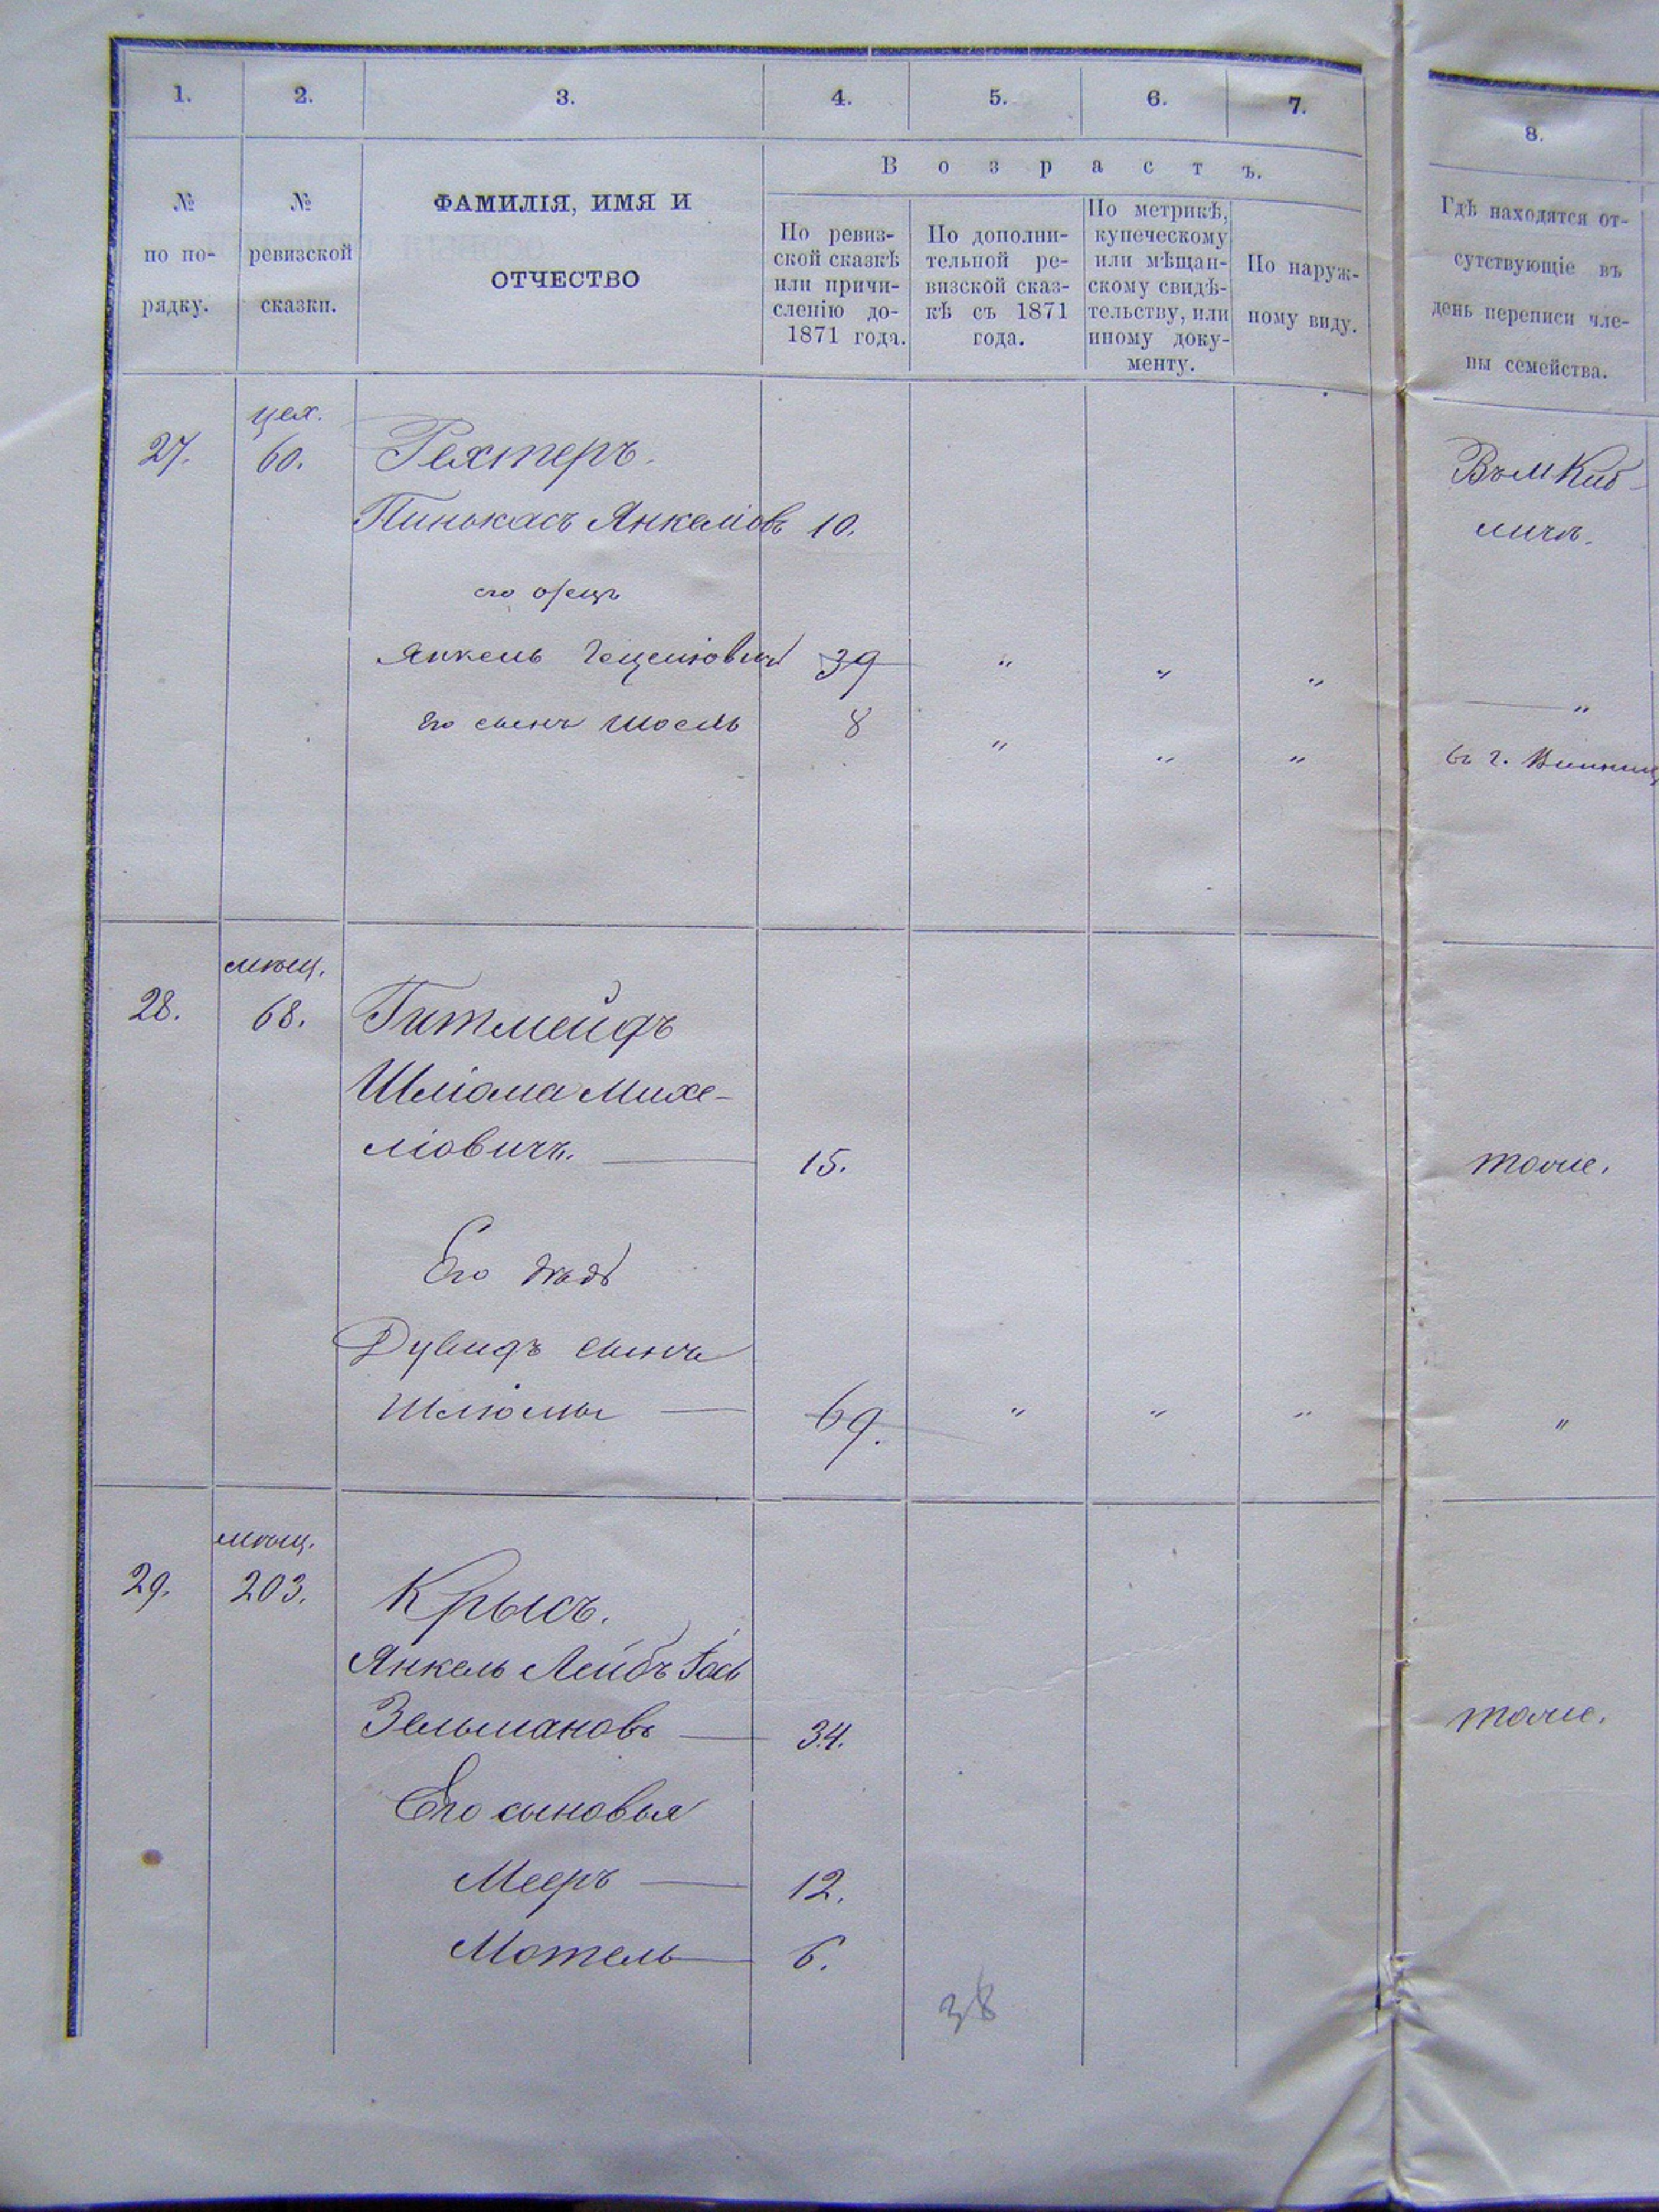 1. 2. 3. 4. 5. 6. 7. 8.
В о з р а с т ъ.
№ по по- рядку.
№ ревизской сказки.
ФАМИЛІЯ, ИМЯ И
ОТЧЕСТВО
По ревиз-
ской сказкѣ
или причи-
сленію до-
1871 года.
По дополни-
тельной ре-
визской сказ-
кѣ съ 1871
года.
По метрикѣ,
купеческому
или мѣщан-
скому свидѣ-
тельству, или
иному доку-
менту.
По наруж-
ному виду.
Гдѣ находятся от-
сутствующіе въ
день переписи чле-
ны семейства.
цех.
27. 60. Рехтеръ. Въ м Киб-
Пинькасъ Янкеліовъ 10. личъ.
его отецъ
Янкель Гецеліовичъ 39 " " " "
Его сынъ Шоель 8 " " " въ г. Винниц
мѣщ.
28. 68. Гитмейдъ
Шліома Михе-
ліовичъ. 15. тоже.
Его дѣдъ
Дувидъ сынъ
Шліомы 69. " " " "
мѣщ.
29. 203. Крысъ.
Янкель Лейбъ Іось
Зельмановъ 34. тоже.
Его сыновья
Мееръ 12.
Мотель 6.
38